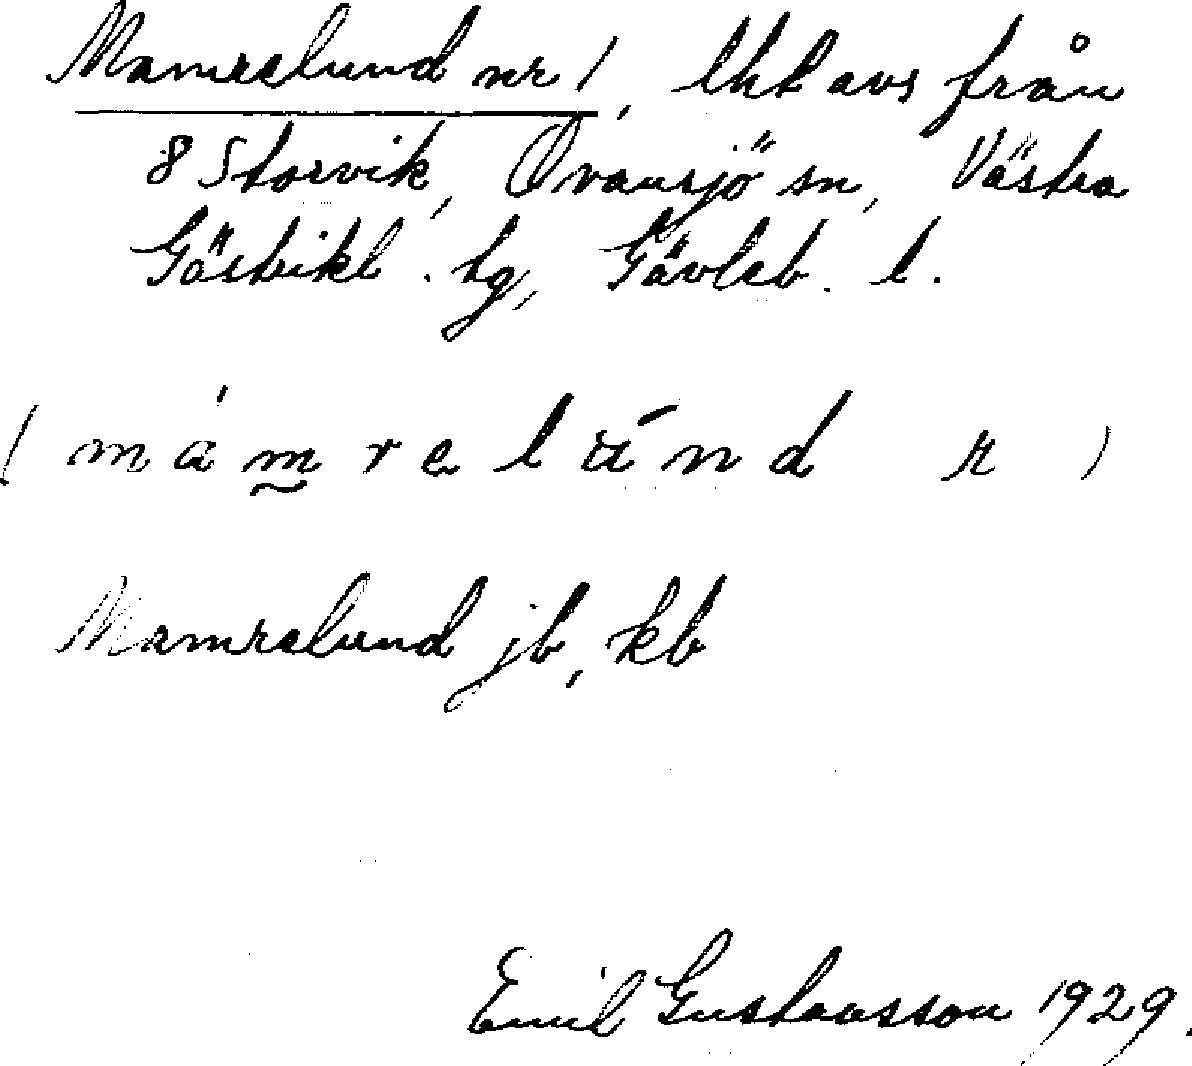 Mamrelund nr 1, lht avs från
8 Storvik, Ovansjö sn, Västra
Gästrikl. tg, Gävleb. l.
(mámrelúnd r)
Mamrelund jb, kb
Emil Gustavsson 1929.